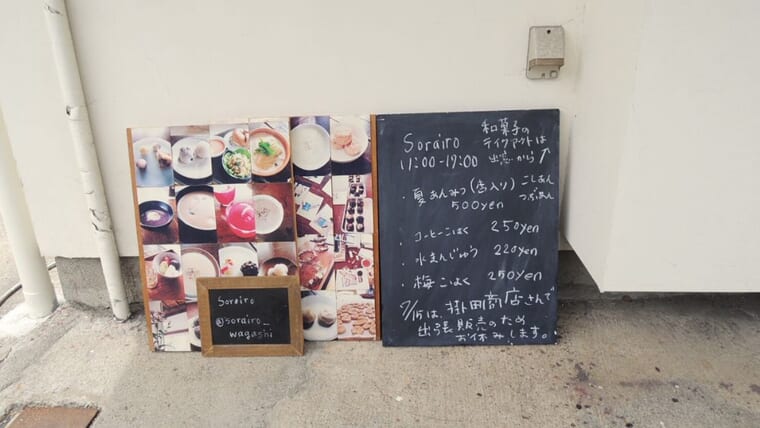 Sorairo
11:00-17:00
和菓子の
テイクアウトは
出窓から↑
・夏あんみつ(缶入り) こしあん
500yen つぶあん
・コーヒーこはく 250yen
・水まんじゅう 220yen
・梅こはく 250yen
7/15は、掛田商店さんで
出張販売のため
お休みします。
Sorairo
@sorairo_
wagashi